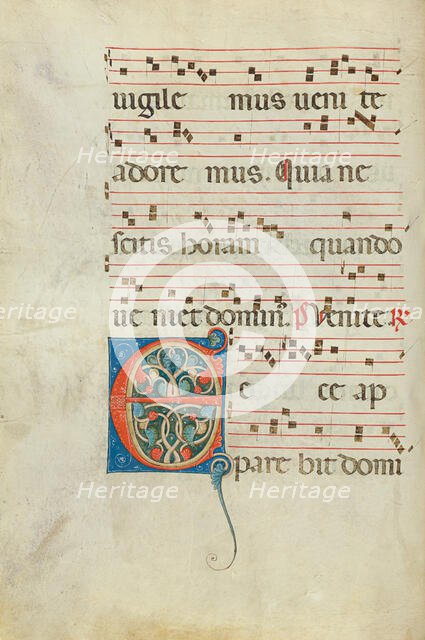 uigile mus ueni te
adore mus. Quia ne
scitis horam quando
ue niet domin. V Venite. R
E e ce ap
pare bit domi
Heritage Heritage
Heritage Heritage Heritage
Heritage Heritage